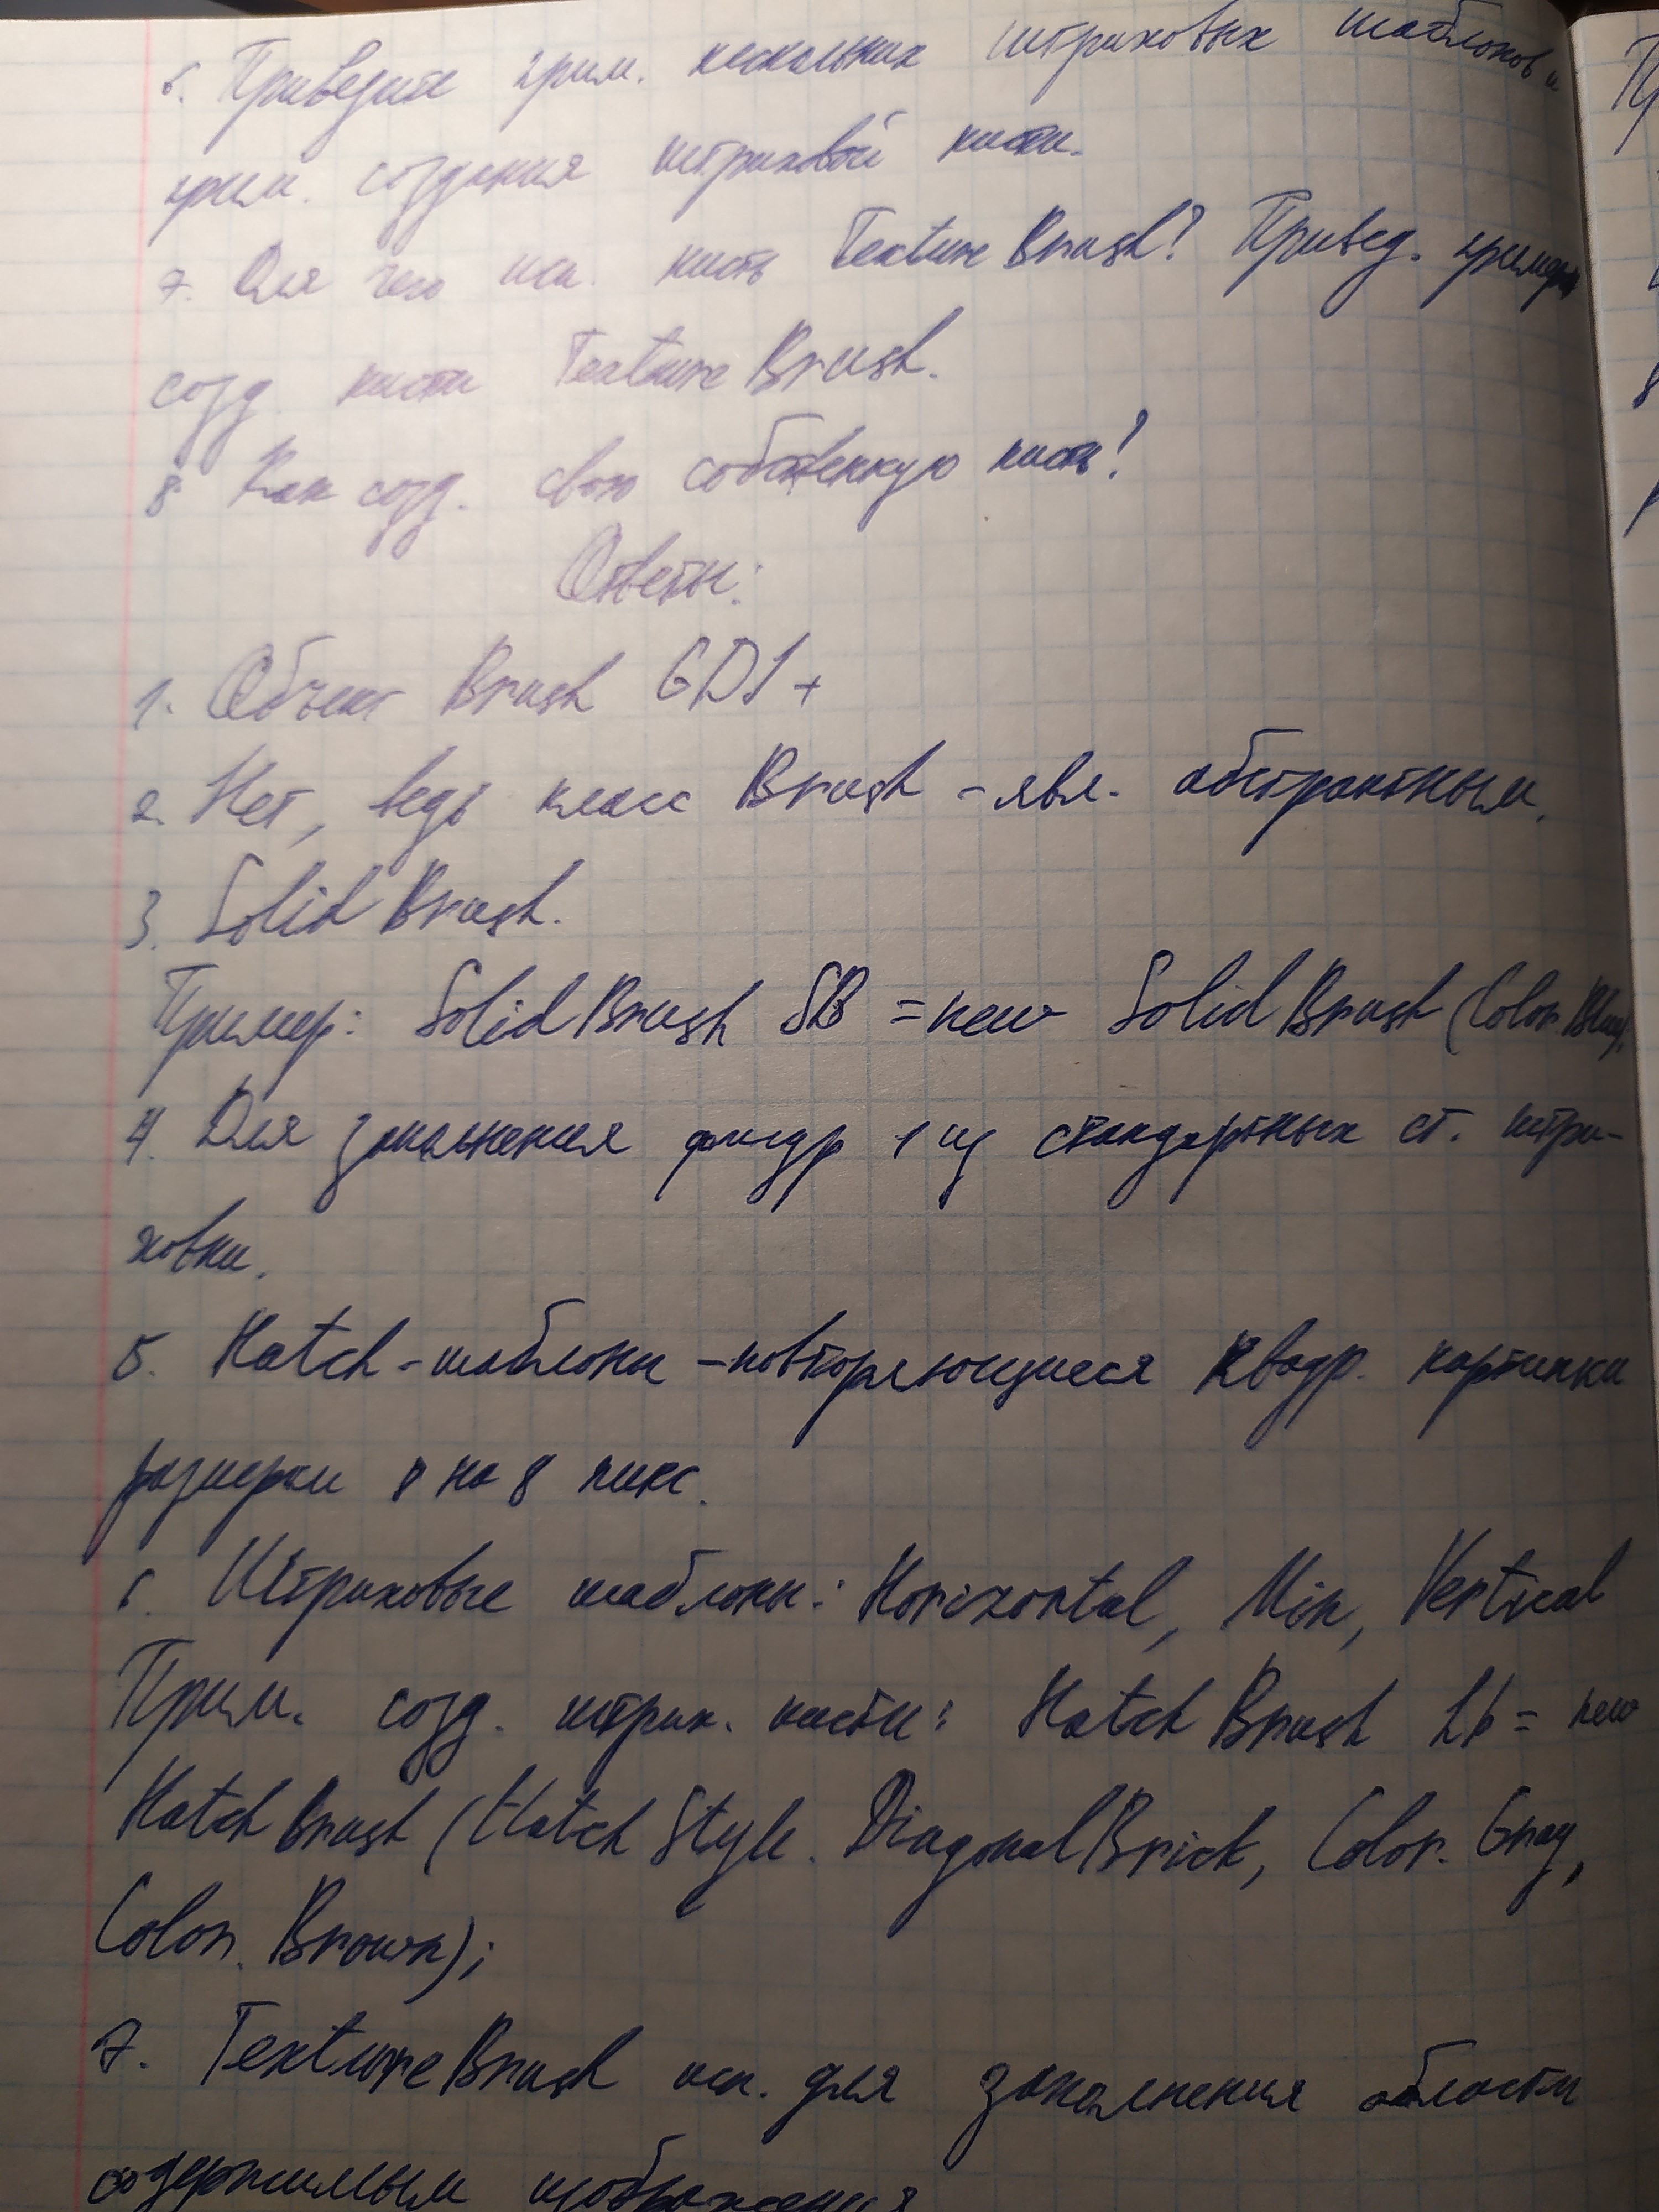 6. Приведите прим. нескольких штриховых шаблонов и
прим. создания штриховой кисти.
7. Для чего исп. кисть TextureBrush? Привед. пример
созд. кисти TextureBrush.
8 Как созд. свою собственную кисть?
Ответы:
1. Объект Brush GDI+
2. Нет, ведь класс Brush - явл. абстрактным.
3. SolidBrush.
Пример: SolidBrush SB = new SolidBrush (Color.Blue);
4. Для заполнения фигур 1 из стандартных ст. штри-
ховки.
5. Hatch-шаблоны - повторяющиеся квадр. картинки
размером 8 на 8 пикс.
6. Штриховые шаблоны: Horizontal, Min, Vertical
Прим. созд. штрих. кисти: HatchBrush hb = new
HatchBrush (HatchStyle. DiagonalBrick, Color. Gray,
Color. Brown);
7. TextureBrush исп. для заполнения области
содержимым изображения